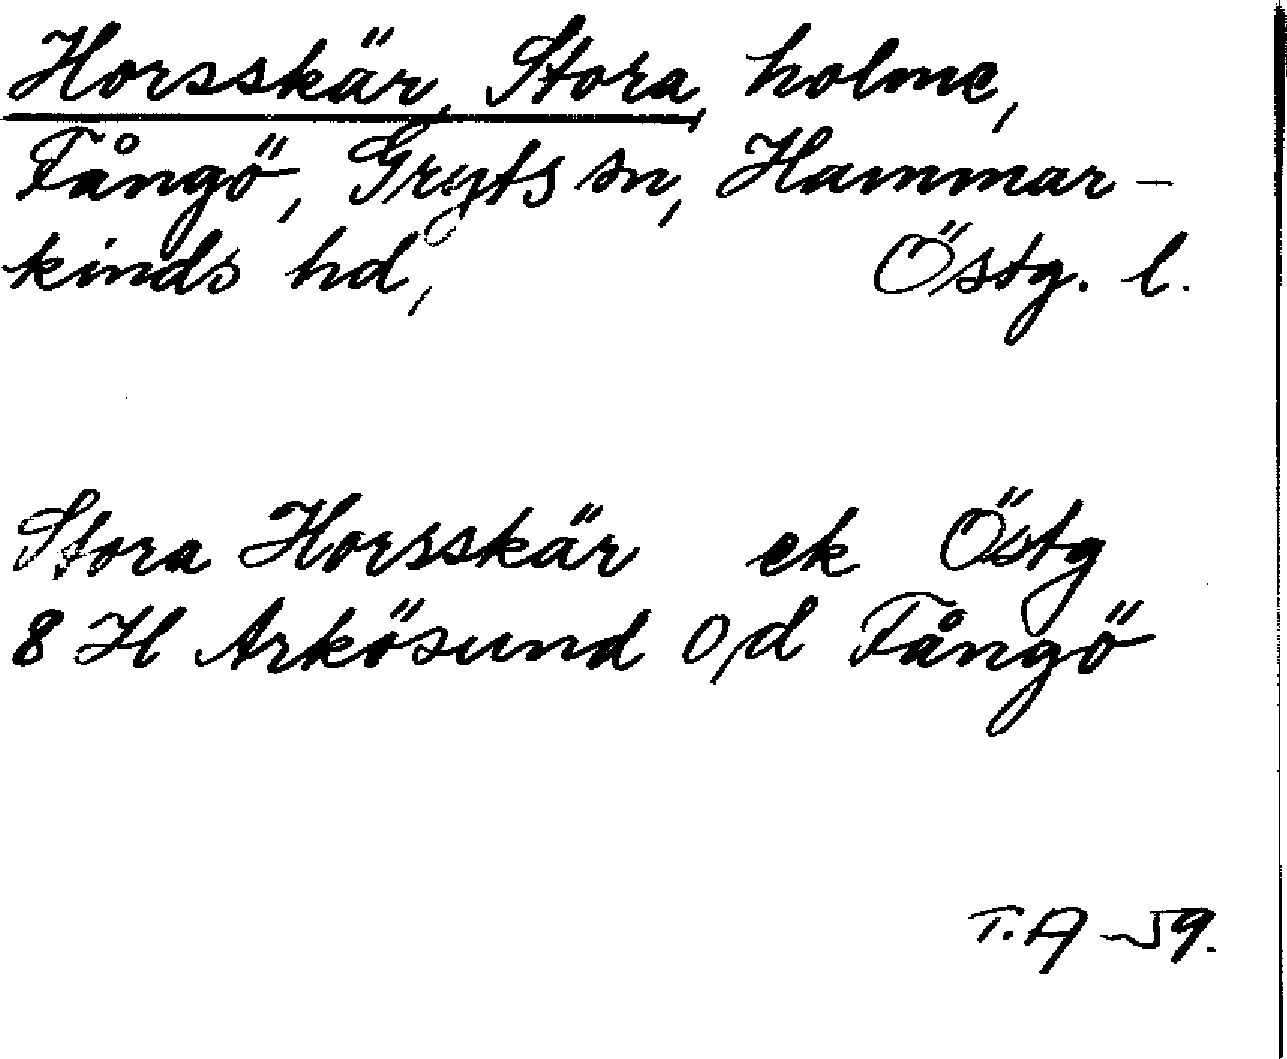 Horsskär, Stora, holme,
Fångö, Gryts sn, Hammar-
kinds hd, Östg. l.
Stora Horsskär ek Östg
8 H Arkösund o,d Fångö
T.A -59.